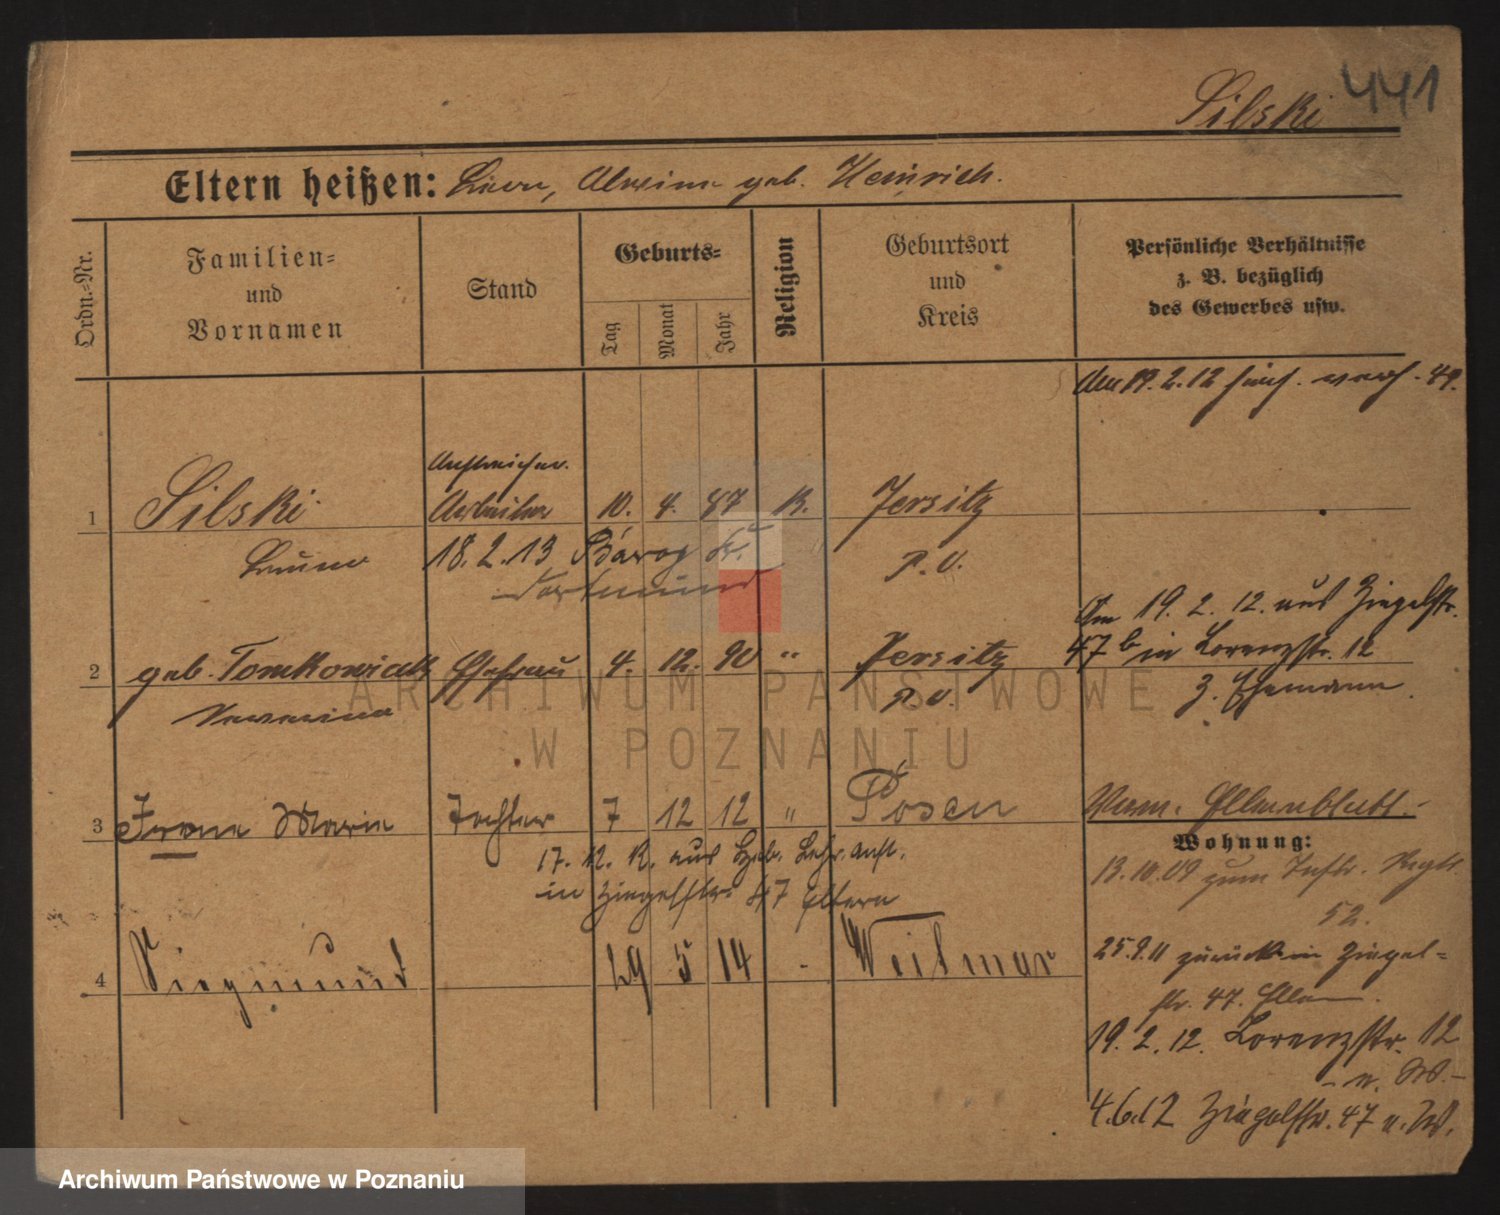 441
Silski
Eltern heißen: Alwine geb. Heinrich.
Ordn.-Nr.
Familien- und Vornamen
Stand
Geburts-
Tag
Monat
Jahr
Religion
Geburtsort und Kreis
Persönliche Verhältnisse
z. B. bezüglich
des Gewerbes usw.
den 19. 2. 12
1 Silski Arbeiter 10. 4. 87 K. Jersitz
Anstreicher
Bruno P. O.
18. 2. 13
Dortmund
Am 19. 2. 12. aus Ziegelstr.
47 b in Lorenzstr. 12
z. Ehemann.
2 geb. Tomkowiak Ehefrau 4. 12. 90 " Jersitz
P. O.
3 Irene Marie Tochter 7 12 12 " Posen
17. 12. 12. aus Heb. Lehr. Anst.
in Ziegelstr. 47 Eltern
Elternblatt.
Wohnung:
13. 10. 09 zum Inftr. Regt.
52.
25. 9. 11 zurück in Ziegel-
str. 47. Eltern.
4 Siegmund 29 5 14 - Weitmar
19. 2. 12. Lorenzstr. 12
- n. W. -
4. 6. 12 Ziegelstr. 47 n. W.
ARCHIWUM PAŃSTWOWE
W POZNANIU
Archiwum Państwowe w Poznaniu